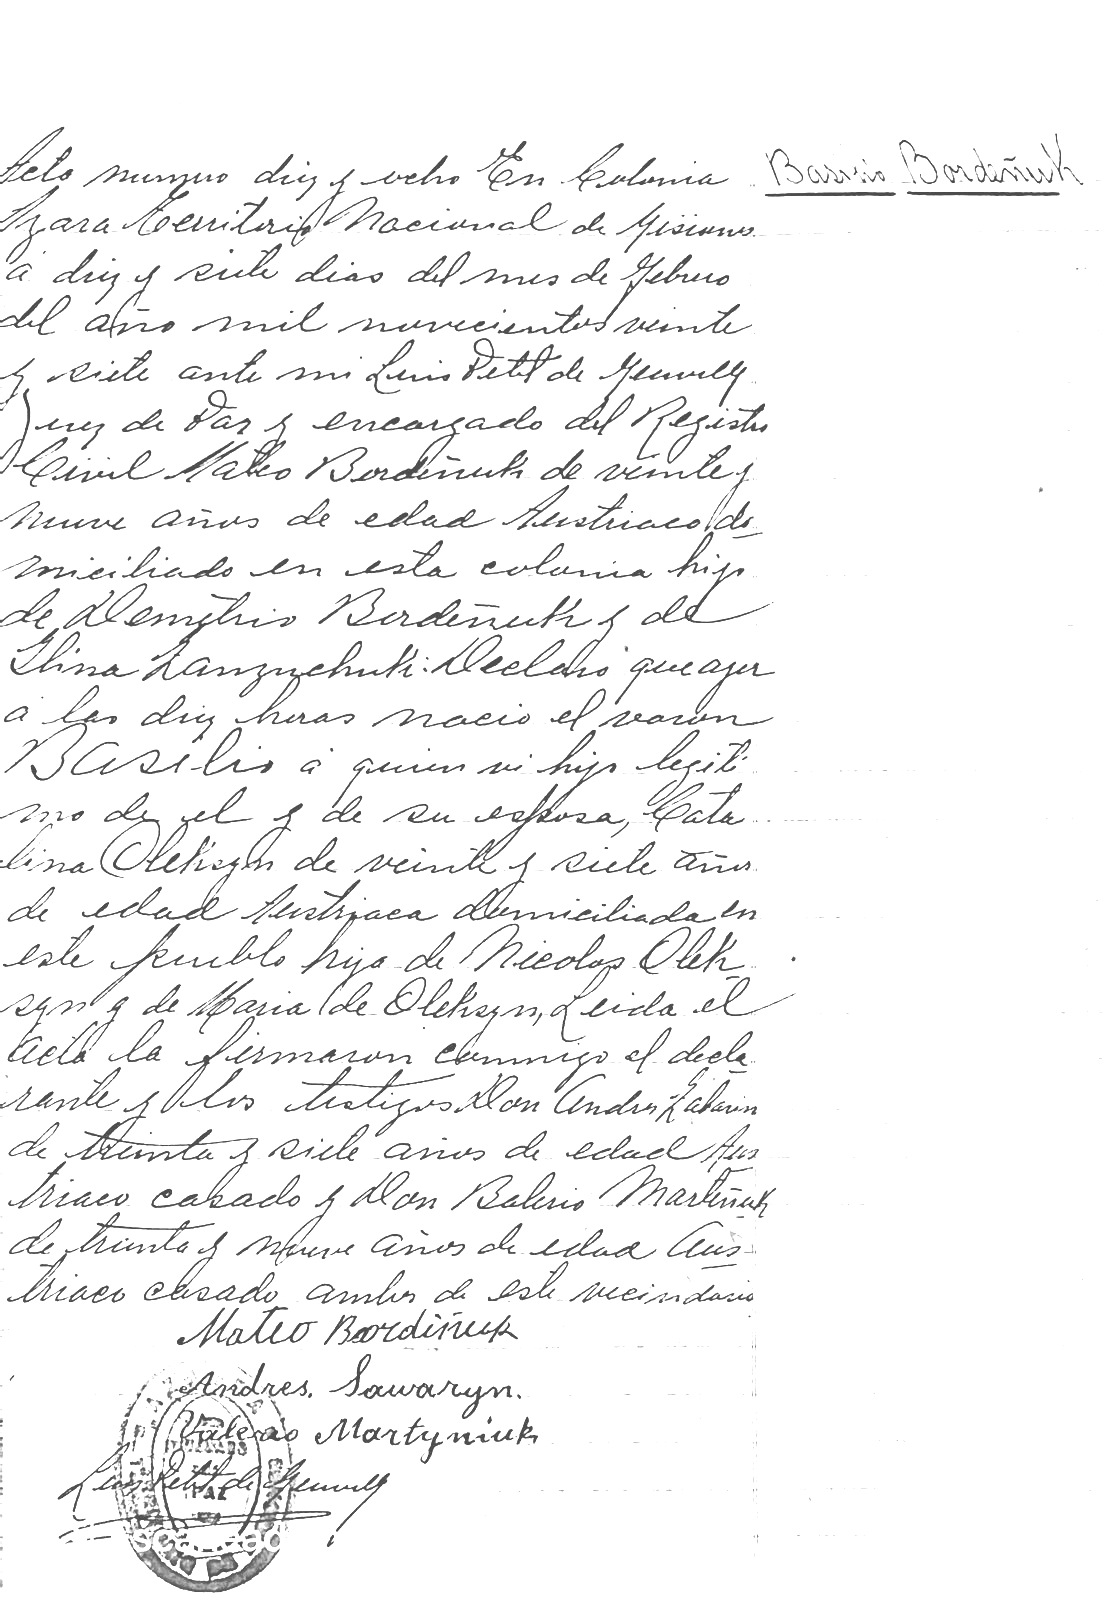 Basilio Bordeñuk
Acta numero diez y ocho En Colonia
Azara Territorio Nacional de Misiones
á diez y siete dias del mes de Febrero
del año mil novecientos veinte
y siete ante mi Luis Petit de Meurvill
Juez de Paz y encargado del Registro
Civil Mateo Bordeñuk de veinte y
nueve años de edad Austriaco do
miciliado en esta colonia hijo
de Demetrio Bordeñuk y de
Elina Declaró que ayer
á las diez horas nacio el varon
Basilio á quien vi hijo legiti
mo de el y de su esposa, Cata
lina Oleksyn de veinte y siete años
de edad Austriaca domiciliada en
este pueblo hija de Nicolas Olek
syn y de Maria de Oleksyn, Leida el
Acta la firmaron conmigo el decla
rante y los testigos Don Andres
de treinta y siete años de edad Aus
triaco casado y Don Balerio Marteñuk
de treinta y nueve años de edad Aus
triaco casado ambos de este vecindario
Mateo Bordiñuk
Andres. Sawaryn.
Valerio Martyniuk
Luis Petit de Meurvill
JUZGADO
PAZ